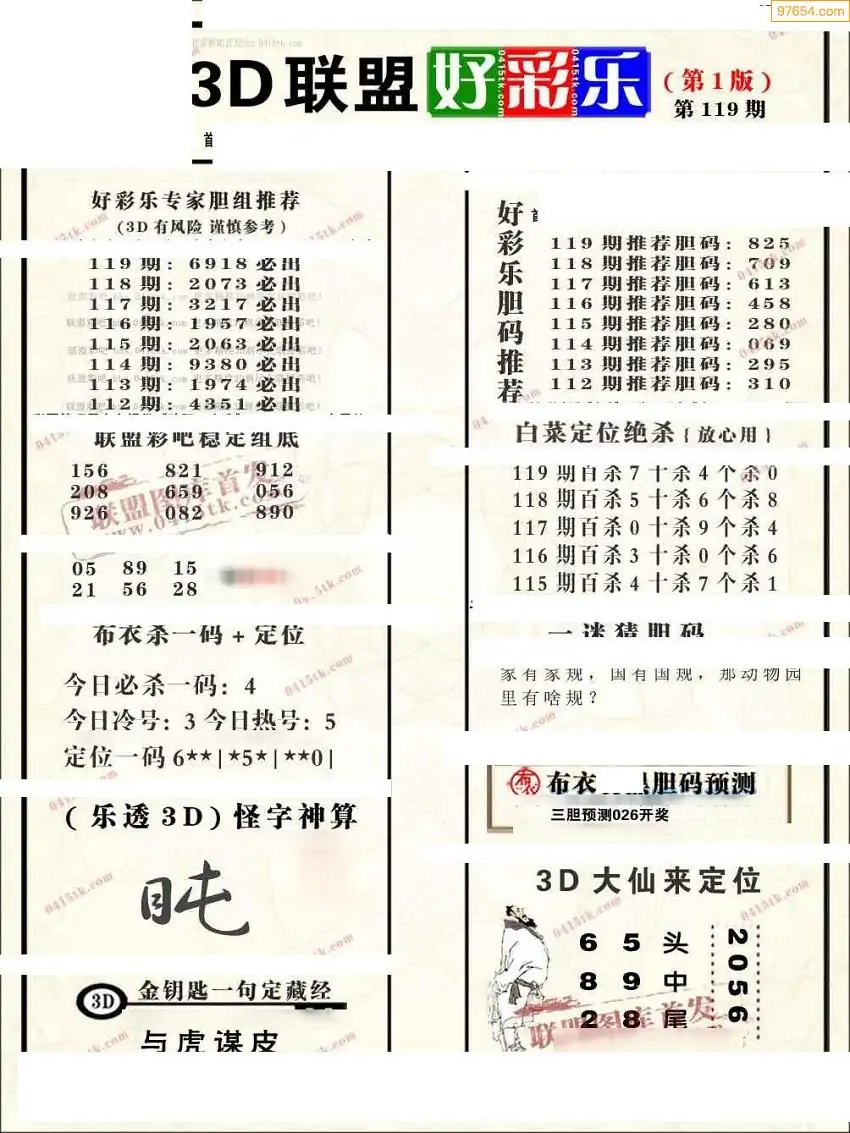 97654.com
3D联盟好彩乐(第1版)
第119期
首
好彩乐专家胆组推荐
(3D有风险 谨慎参考)
119期: 6918必出
118期: 2073必出
117期: 3217必出
116期: 1957必出
115期: 2063必出
114期: 9380必出
113期: 1974必出
112期: 4351必出
联盟彩吧稳定组底
156 821 912
208 659 056
926 082 890
05 89 15
21 56 28
布衣杀一码+定位
今日必杀一码: 4
今日冷号: 3 今日热号: 5
定位一码6**|*5*|**0|
(乐透3D)怪字神算
3D
金钥匙一句定藏经
与虎谋皮
好彩乐胆码推荐
119期推荐胆码: 825
118期推荐胆码: 709
117期推荐胆码: 613
116期推荐胆码: 458
115期推荐胆码: 280
114期推荐胆码: 069
113期推荐胆码: 295
112期推荐胆码: 310
白菜定位绝杀{放心用}
119期百杀7十杀4个杀0
118期百杀5十杀6个杀8
117期百杀0十杀9个杀4
116期百杀3十杀0个杀6
115期百杀4十杀7个杀1
一迷猜胆码
家有家规，国有国规，那动物园
里有啥规？
布衣 胆码预测
三胆预测026开奖
3D大仙来定位
6 5 头
8 9 中
2 8 尾
2056
联盟图库首发
www.0415tk.com
0415tk.com